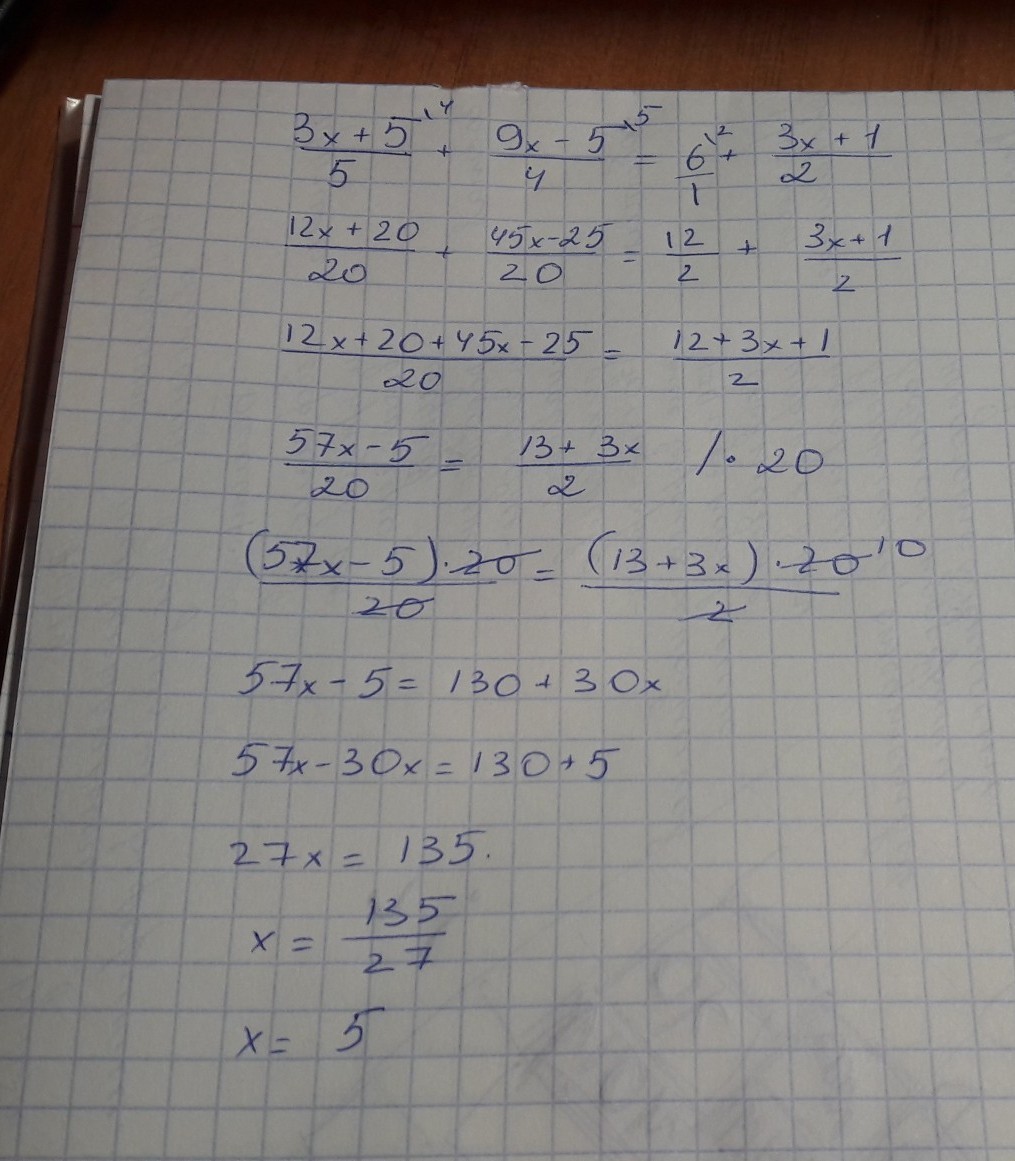 (3x + 5)/5 \4 + (9x - 5)/4 \5 = 6/1 \2 + (3x + 1)/2
(12x + 20)/20 + (45x - 25)/20 = 12/2 + (3x + 1)/2
(12x + 20 + 45x - 25)/20 = (12 + 3x + 1)/2
(57x - 5)/20 = (13 + 3x)/2 /· 20
(57x - 5) · 20/20 = (13 + 3x) · 20/2 10
57x - 5 = 130 + 30x
57x - 30x = 130 + 5
27x = 135.
x = 135/27
x = 5